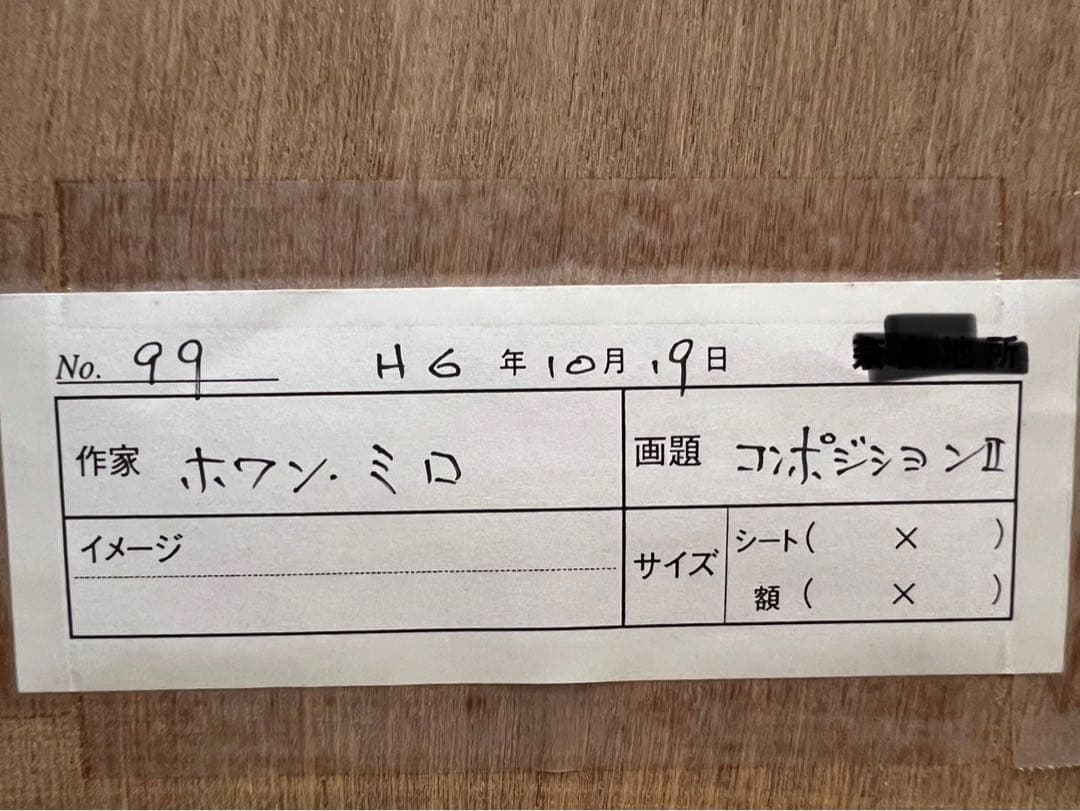 No. 99 H6年10月19日
作家 ホワン・ミロ 画題 コンポジションⅡ
イメージ サイズ シート( × )
額( × )